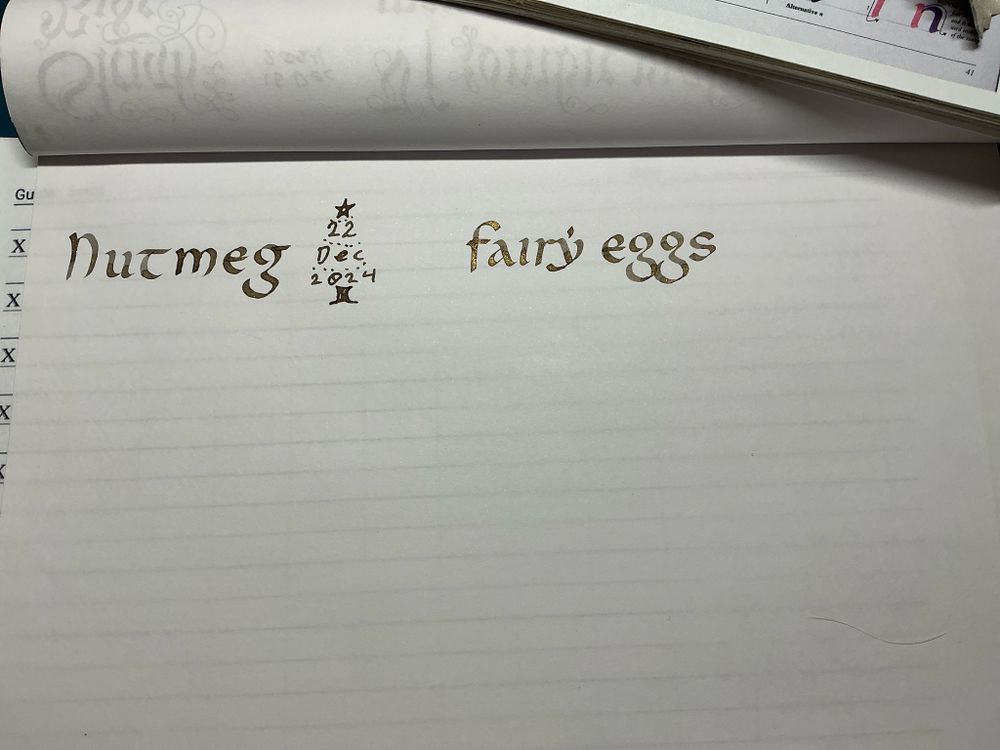 Alternative a
41
Gu
x
x
x
x
x
Nutmeg
22
Dec
2024
fairy eggs